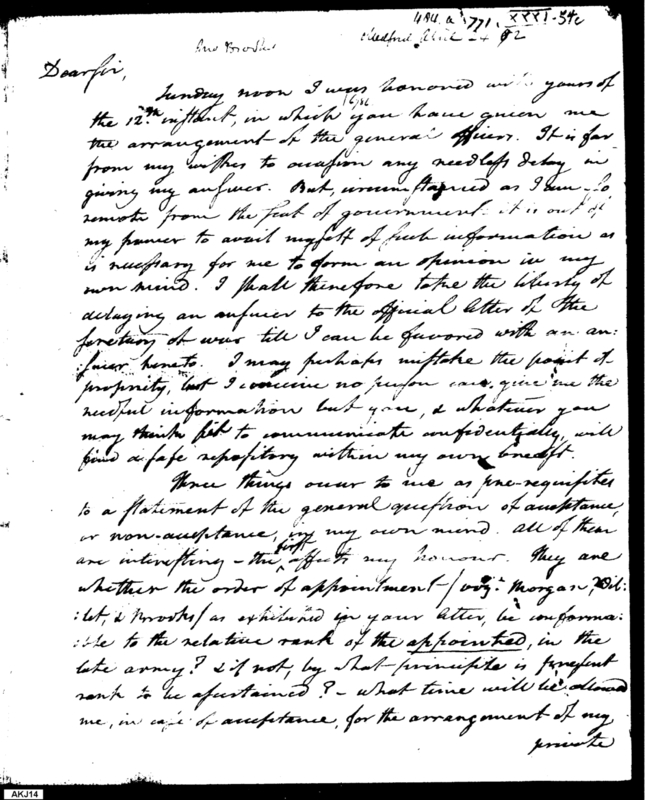 XXXI-342
Medford, April 92
Dear Sir,
Sunday noon I was honored with yours of
the 12th. instant, in which you have given me
the arrangement of the general officers. It is far
from my wishes to occasion any needless delay in
giving my answer. But, circumstanced as I am so
remote from the seat of government it is out of
my power to avail myself of such information as
is necessary for me to form an opinion in my
own mind. I shall therefore take the liberty of
delaying an answer to the official letter of the
Secretary of war till I can be favored with an an:
:swer hereto. I may perhaps mistake the point of
propriety, but I conceive no person can give me the
needful information but you, & whatever you
may think fit to communicate confidentially, will
find a safe repository within my own breast.
Three things occur to me as pre-requisites
to a statement of the general question of acceptance,
or non-acceptance, in my own mind. All of them
are interesting - the first affects my honour. They are
whether the order of appointment - (viz. Morgan, Wil:
:let, & Brooks) as exhibited in your letter, be conforma:
:ble to the relative rank of the appointed, in the
late army? & if not, by what principle is present
rank to be ascertained? - what time will be allowed
me, in case of acceptance, for the arrangement of my
private
AKJ14